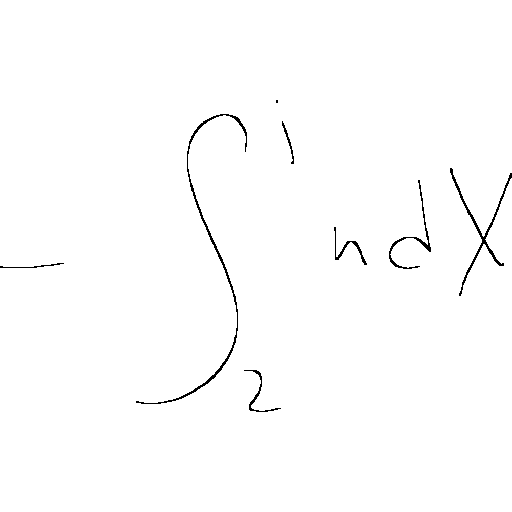 - \int_{2}^{i} n d X